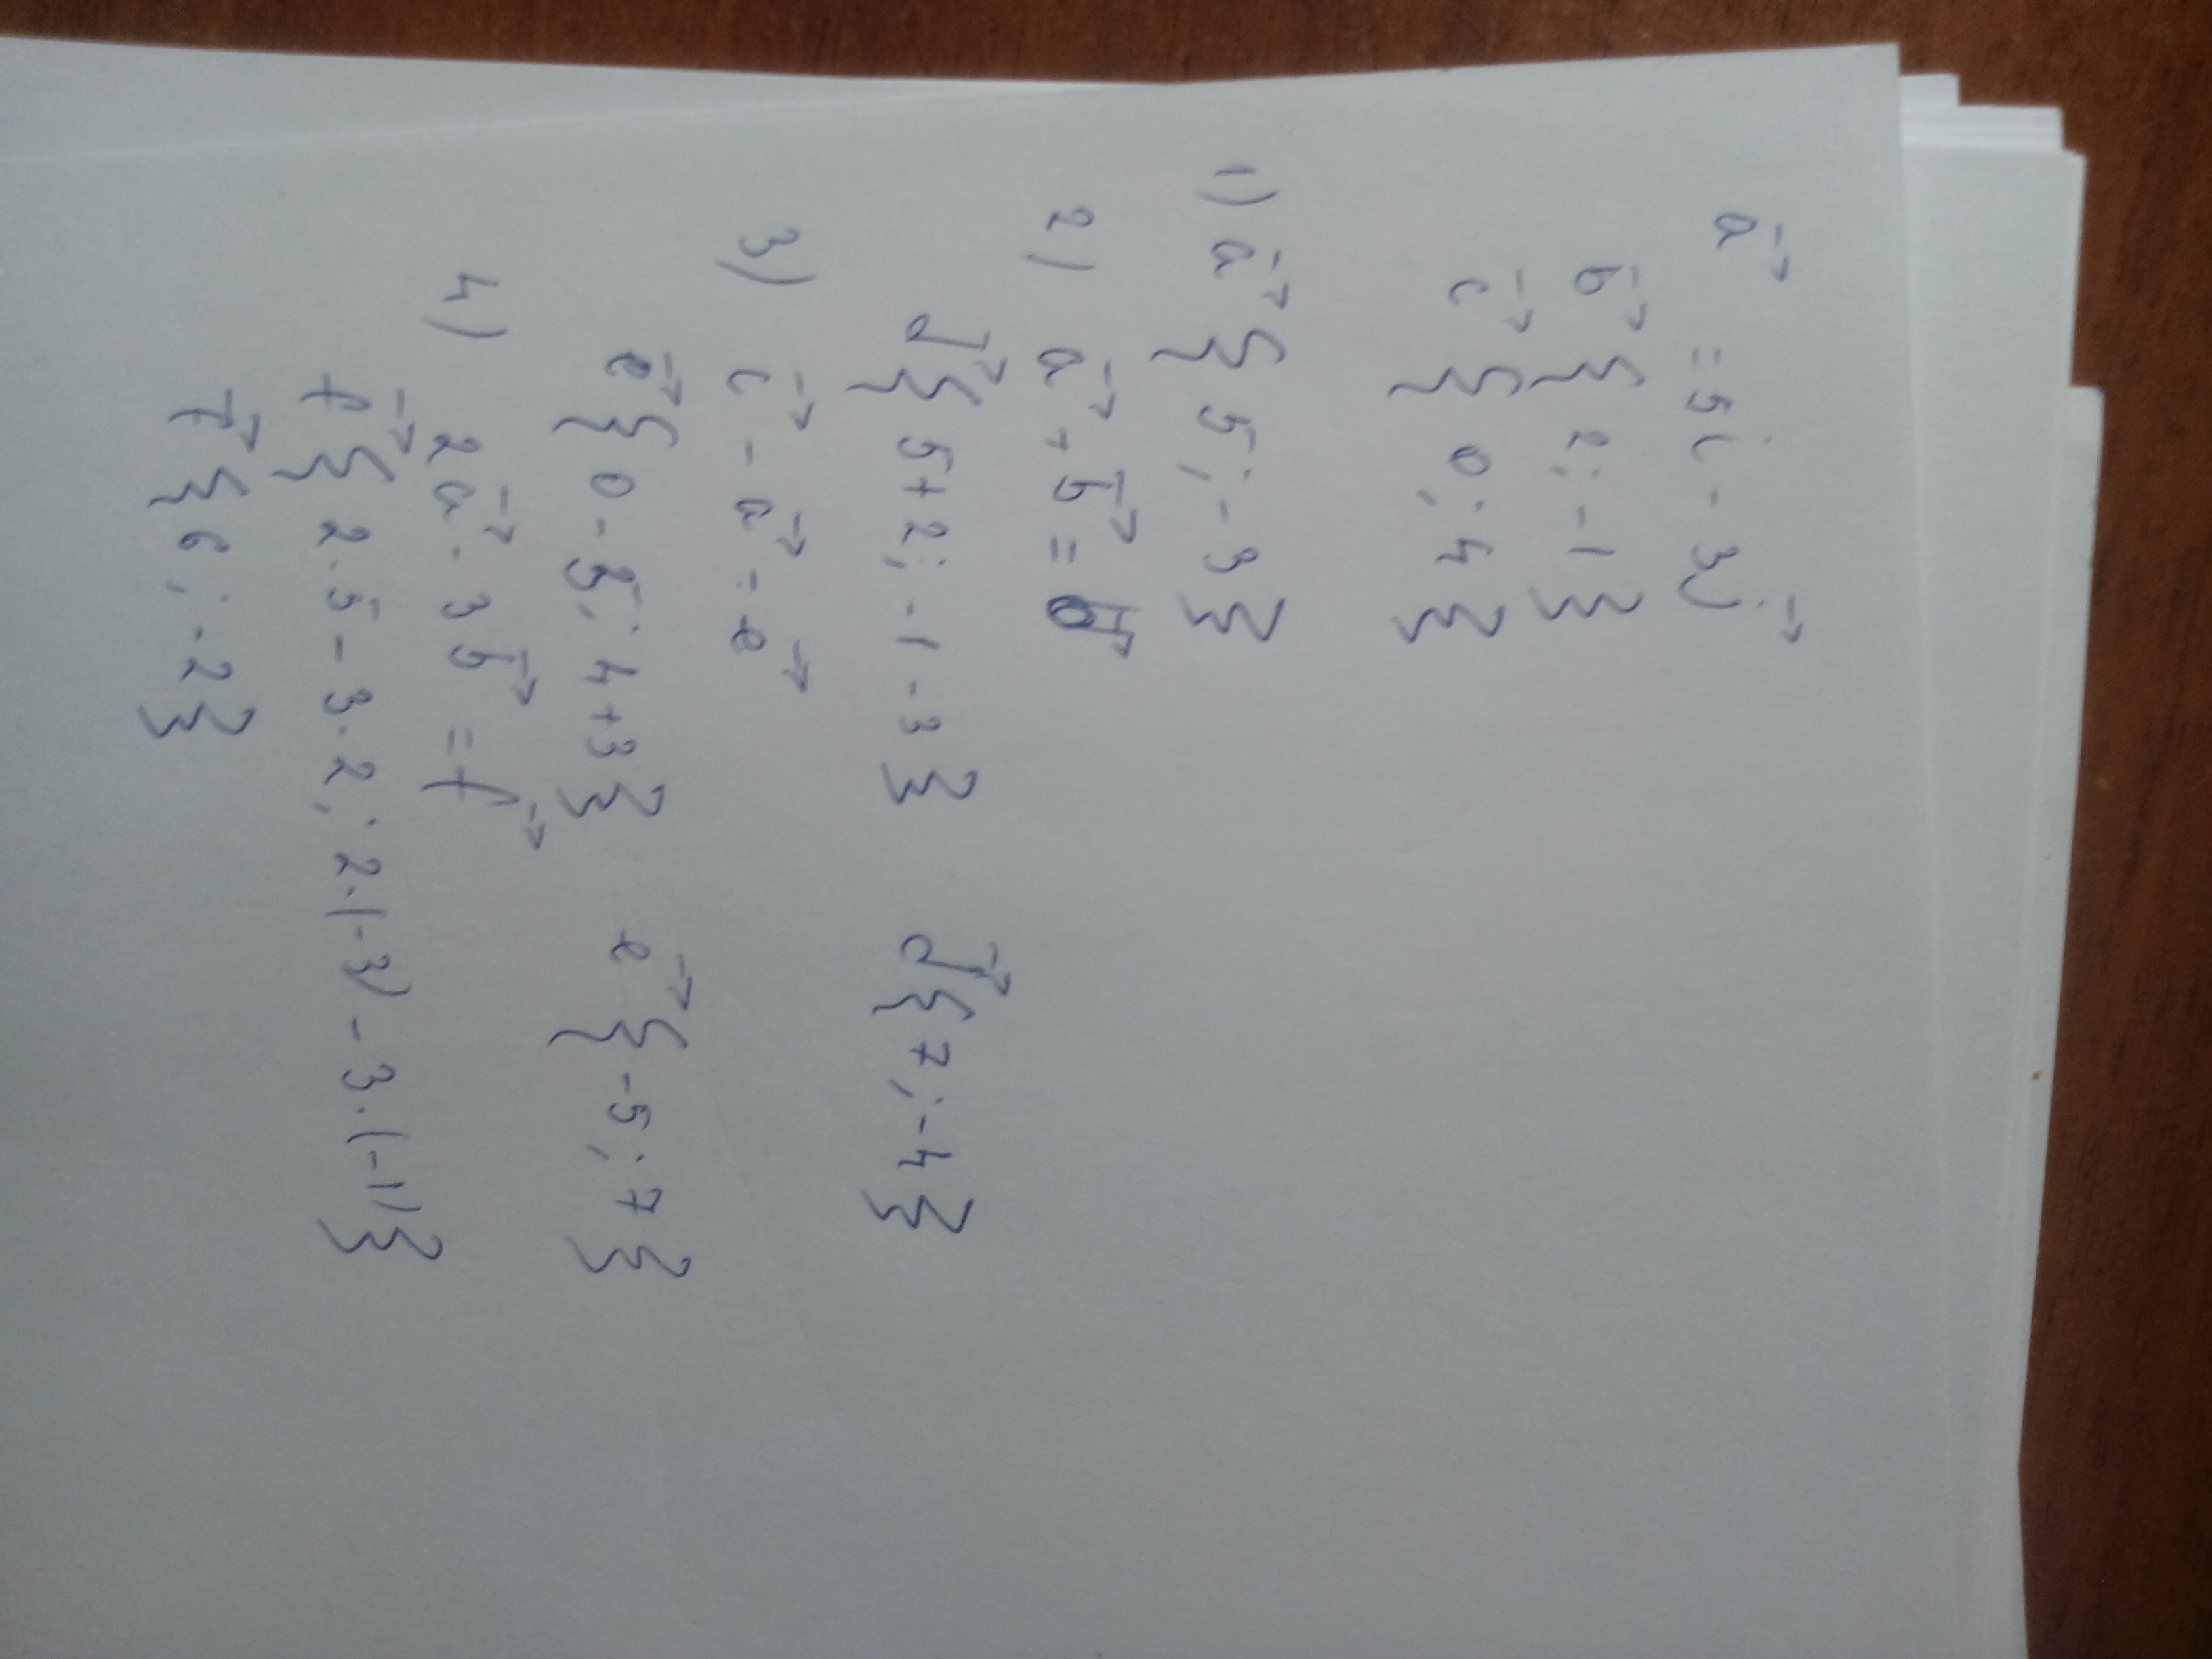 a⃗ = 5i - 3j⃗
b⃗ { 2; -1 }
c⃗ { 0; 4 }
1) a⃗ { 5; -3 }
2) a⃗ + b⃗ = d⃗
d⃗ { 5+2; -1-3 } d⃗ { 7; -4 }
3) c⃗ - a⃗ = e⃗
e⃗ { 0-5; 4+3 } e⃗ { -5; 7 }
4) 2a⃗ - 3b⃗ = f⃗
f⃗ { 2·5-3·2; 2·(-3)-3·(-1) }
f⃗ { 6; -2 }